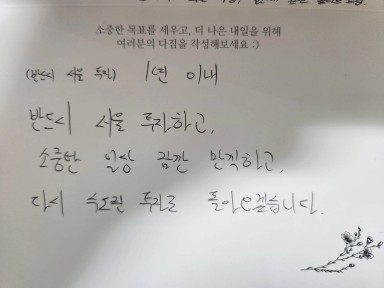 소중한 목표를 세우고, 더 나은 내일을 위해
여러분의 다짐을 작성해보세요 :)
(반드시 서울 투자) 1년 이내
반드시 서울 투자하고,
소중한 일상 잠깐 만끽하고,
다시 수도권 투자로 돌아오겠습니다.